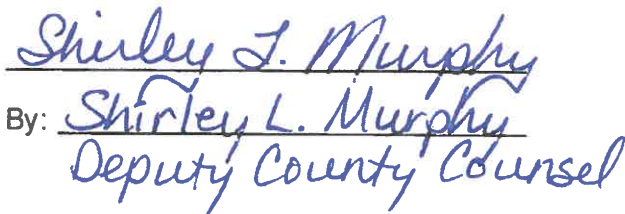 Shirley L. Murphy
By: Shirley L. Murphy
Deputy County Counsel